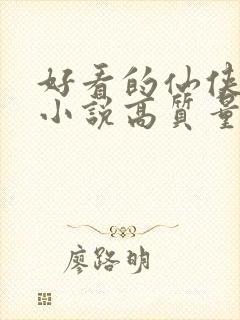 好看的仙侠
小说高质量
廖路明